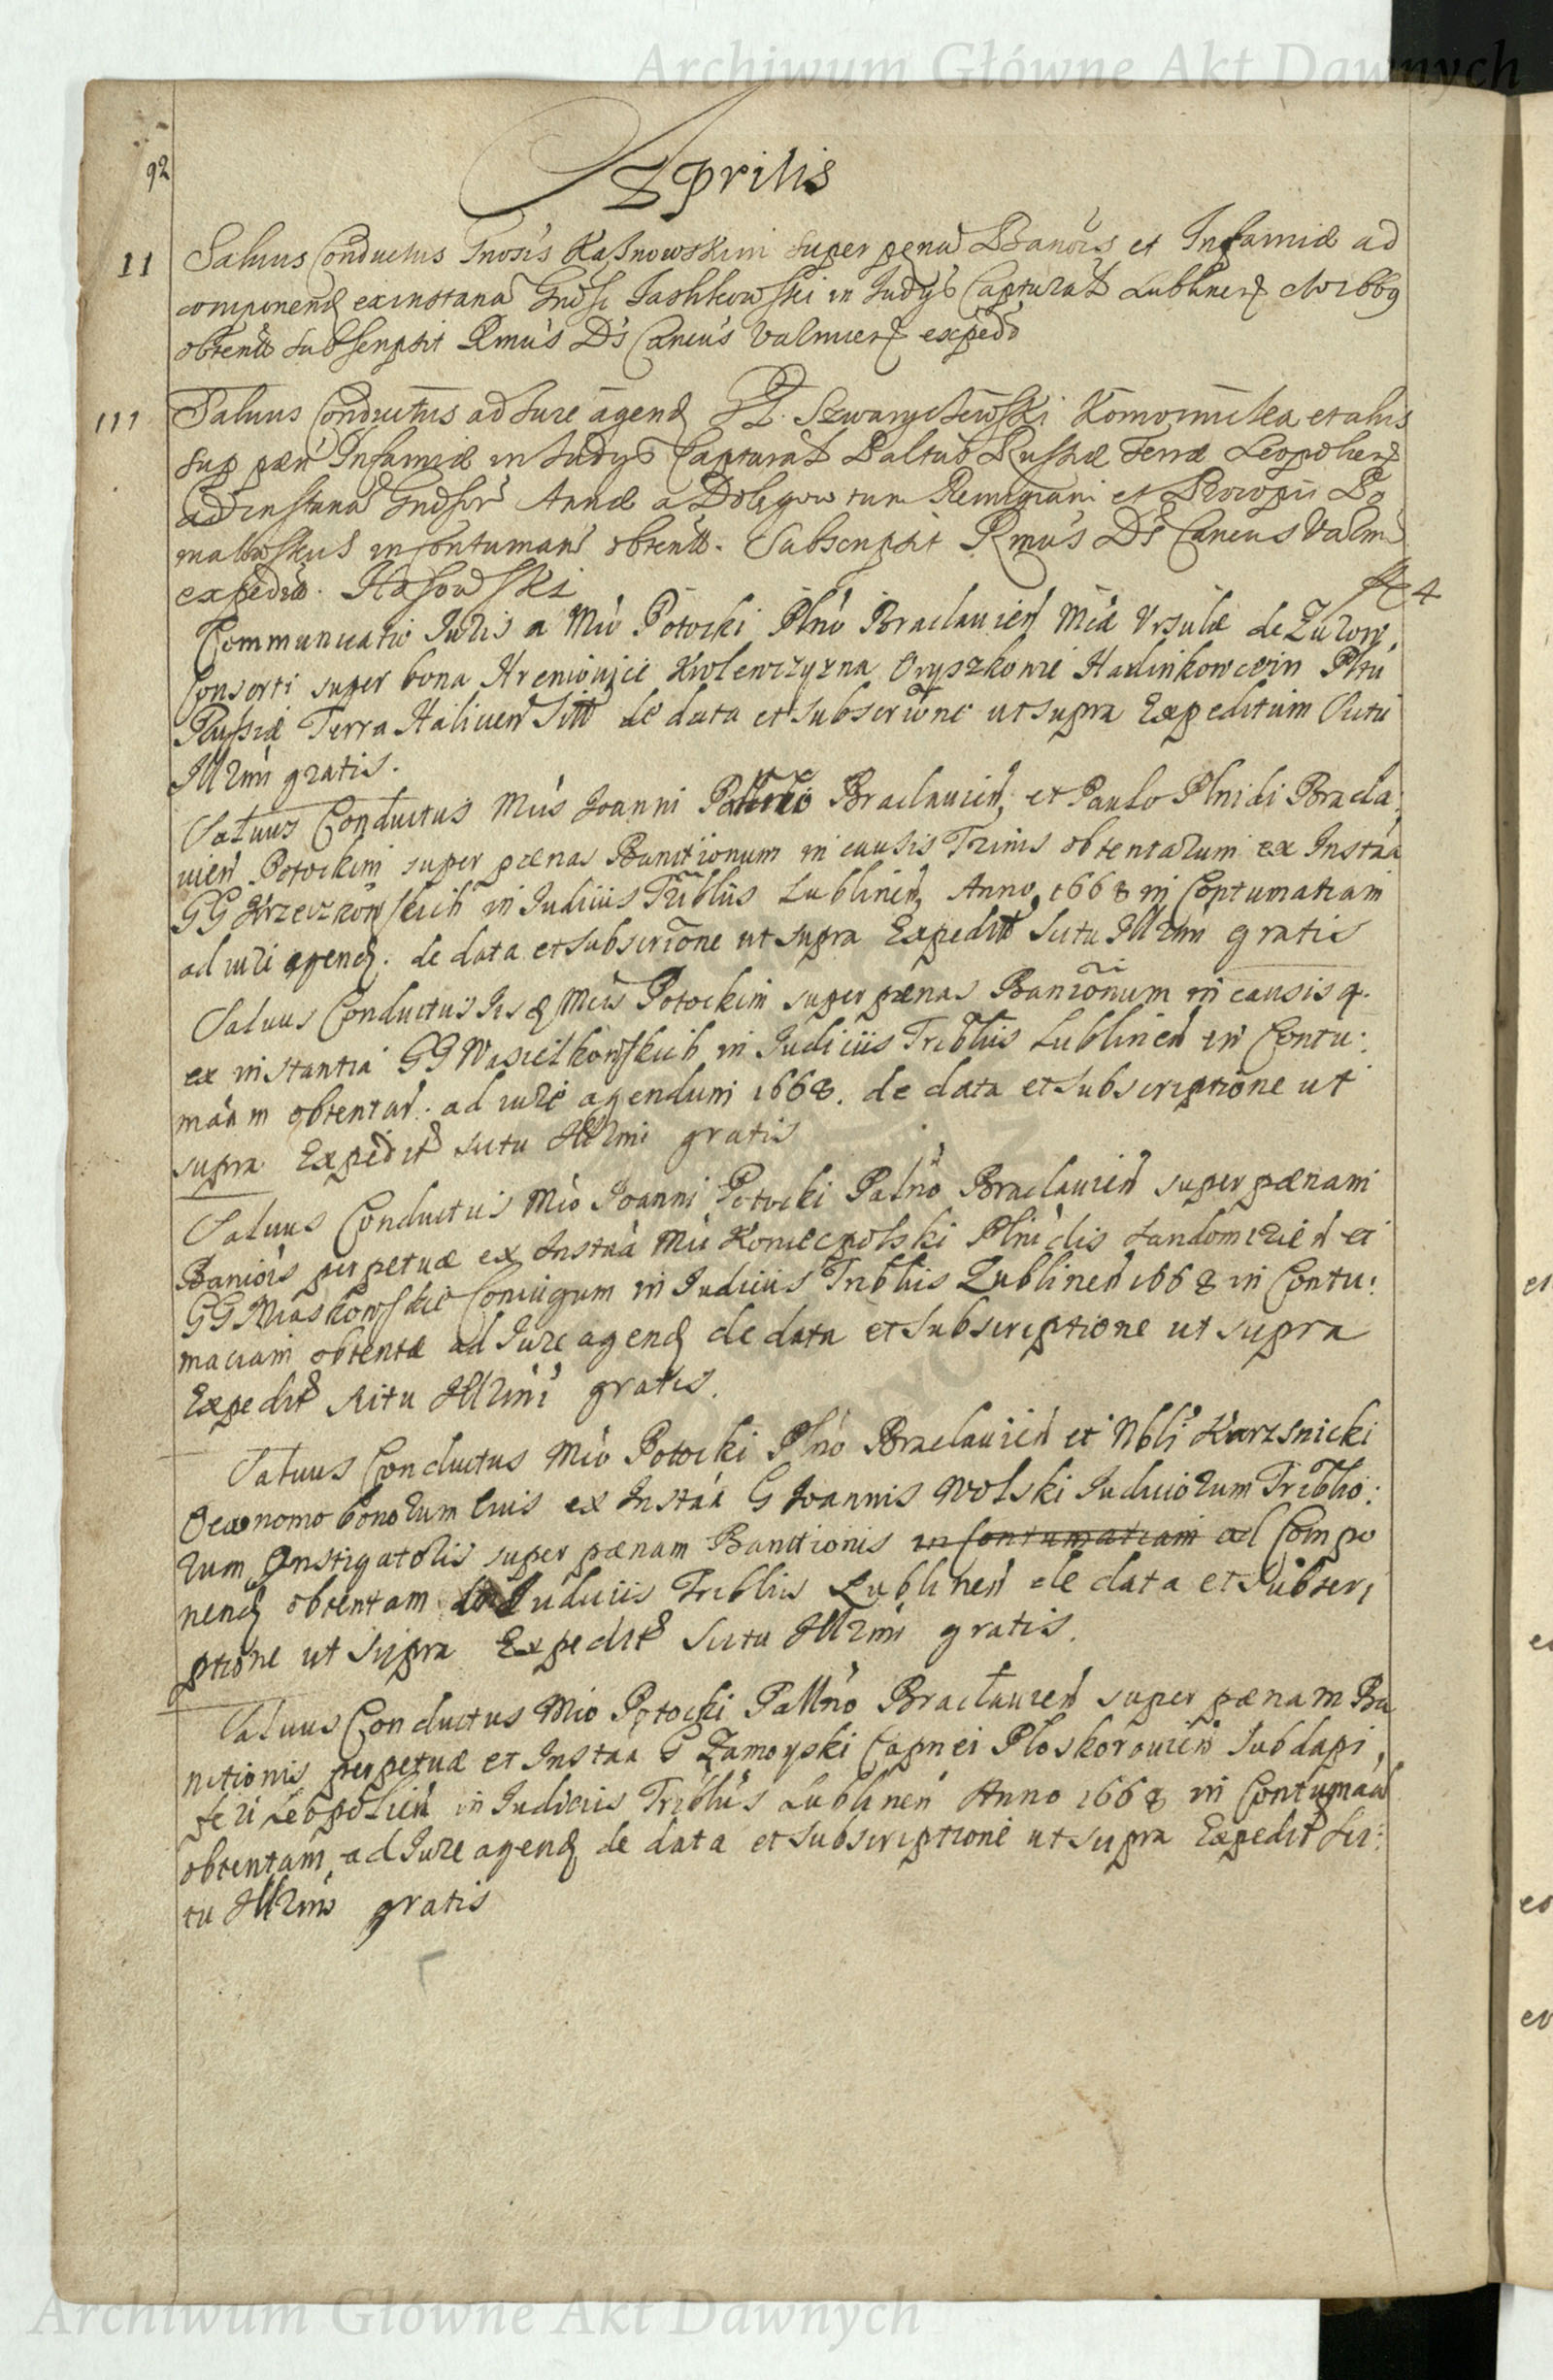 Archiwum Główne Akt Dawnych
92
Aprilis
11
Salvus Conductus Gnosis Kasnowskim super pena Banōis et Infamiæ ad
componend ex instana Gndsi Jashkowski in Judys Capturat Lublinen 1669
obtentā subscripsit Rmus Ds Cancus Valmien expedo
111
Salvus Conductus ad Jure agend Szwarycewski Komornitea et aliis
sup pæn Infamiæ in Judys Capturat Paltus Russiæ Terræ Leopolien
ad instana Gndsor Annæ a Dolegow tum Remigiani et Procopii Do
malewskich in contuman obtentā. Subscripsit Rmus Ds Cancus Valm
expedit. Hasowski
4
Communicatio Juris a Mco Potocki Plno Braclavien Mcæ Ursulæ de Zurow
Consorti super bona Hreniowice Krolewczyzna Oryszkowie Hadinkowce in Pltu
Russiæ Terra Halicien Sitt de data et subscriōne ut supra Expeditum Scitu
Illrmi gratis.
Salvus Conductus Mcis Joanni Palno Braclavien, et Paulo Plnidi Bracla:
vien Potockim super pænas Banitionum in causis Trinis obtentarum ex Instaa
GG Krzeczkowskich in Judiciis Triblis Lublinen, Anno 1668 in Contumatiam
ad iure agend. de data et subscriōne ut supra Expedit Scitu Illrmi gratis
Salvus Conductus Iisd Mcis Potockim super pænas Baniōnum in causis 4.
ex instantia GG Wasilkowskich in Judiciis Triblis Lublinen in Contu:
maam obtentar. ad iure agendum 1668. de data et subscriptione ut
supra Expedit scitu Illrmi gratis
Salvus Conductus Mco Joanni Potocki Palno Braclavien super pænam
Baniōis perpetuæ ex Instaa Mci Koniecpolski Plnidis Sandomirien et
GG Miaskowskie Coniugum in Judiciis Triblis Lublinen 1668 in Contu:
maciam obtentæ ad Jure agend de data et subscriptione ut supra
Expedit Scitu Illrmi gratis.
Salvus Conductus Mco Potocki Plno Braclavien et Nbli Karsnicki
Oeconomo bonorum eius ex Instaa G Joannis Wolski Judiciorum Triblio:
rum Instigatoris super pænam Banitionis in Contumatiam ad Compo
nend obtentam Judiciis Triblis Lublinen de data et subscri
ptione ut supra Expedit Scitu Illrmi gratis.
Salvus Conductus Mco Potocki Pallno Braclavien super pænam Ba
nitionis perpetuæ et Instaa G Zamoyski Capnei Ploskorovien Subdapi,
feri Leopolien in Judiciis Triblis Lublinen Anno 1668 in Contumaa
obtentam ad Jure agend de data et subscriptione ut supra Expedit Sci:
tu Illrmi gratis
Archiwum Główne Akt Dawnych